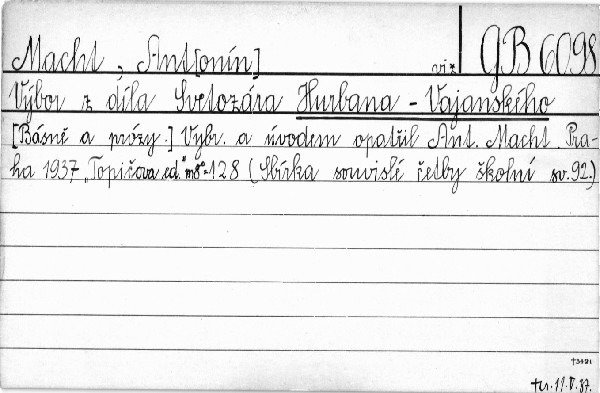 Macht, Ant[onín] viz GB 6098
Výbor z díla Svetozára Hurbana - Vajanského
[Básně a prózy.] Vybr. a úvodem opatřil Ant. Macht. Pra-
ha 1937, "Topičova ed." m8° 128 (Sbírka souvislé četby školní sv. 92.)
+3481
11.V.37.